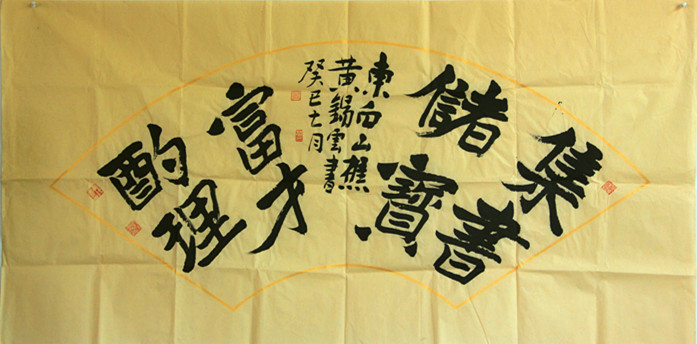 集書
儲寶
東向山樵
黄錫雲書
癸巳七月
富才
酌理